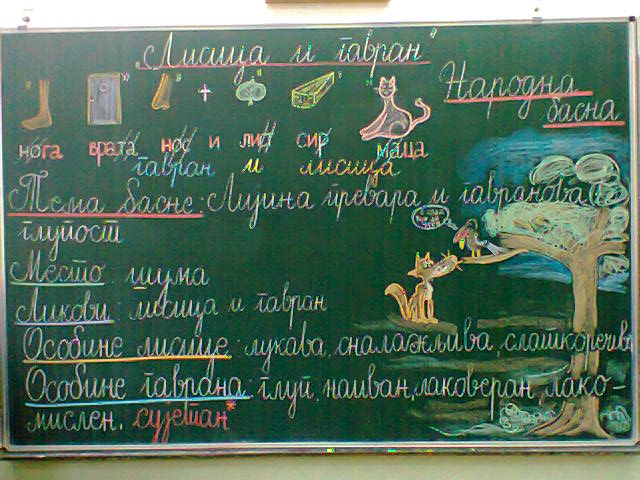 „Лисица и гавран“
Народна
басна
нога врата нос и лист сир маца
гавран и лисица
Тема басне: Лијина превара и гавранова
глупост
Место: шума
Ликови: лисица и гавран
Особине лисице: лукава, сналажљива, слаткоречива
Особине гаврана: глуп, наиван, лаковеран, лако-
мислен, сујетан*